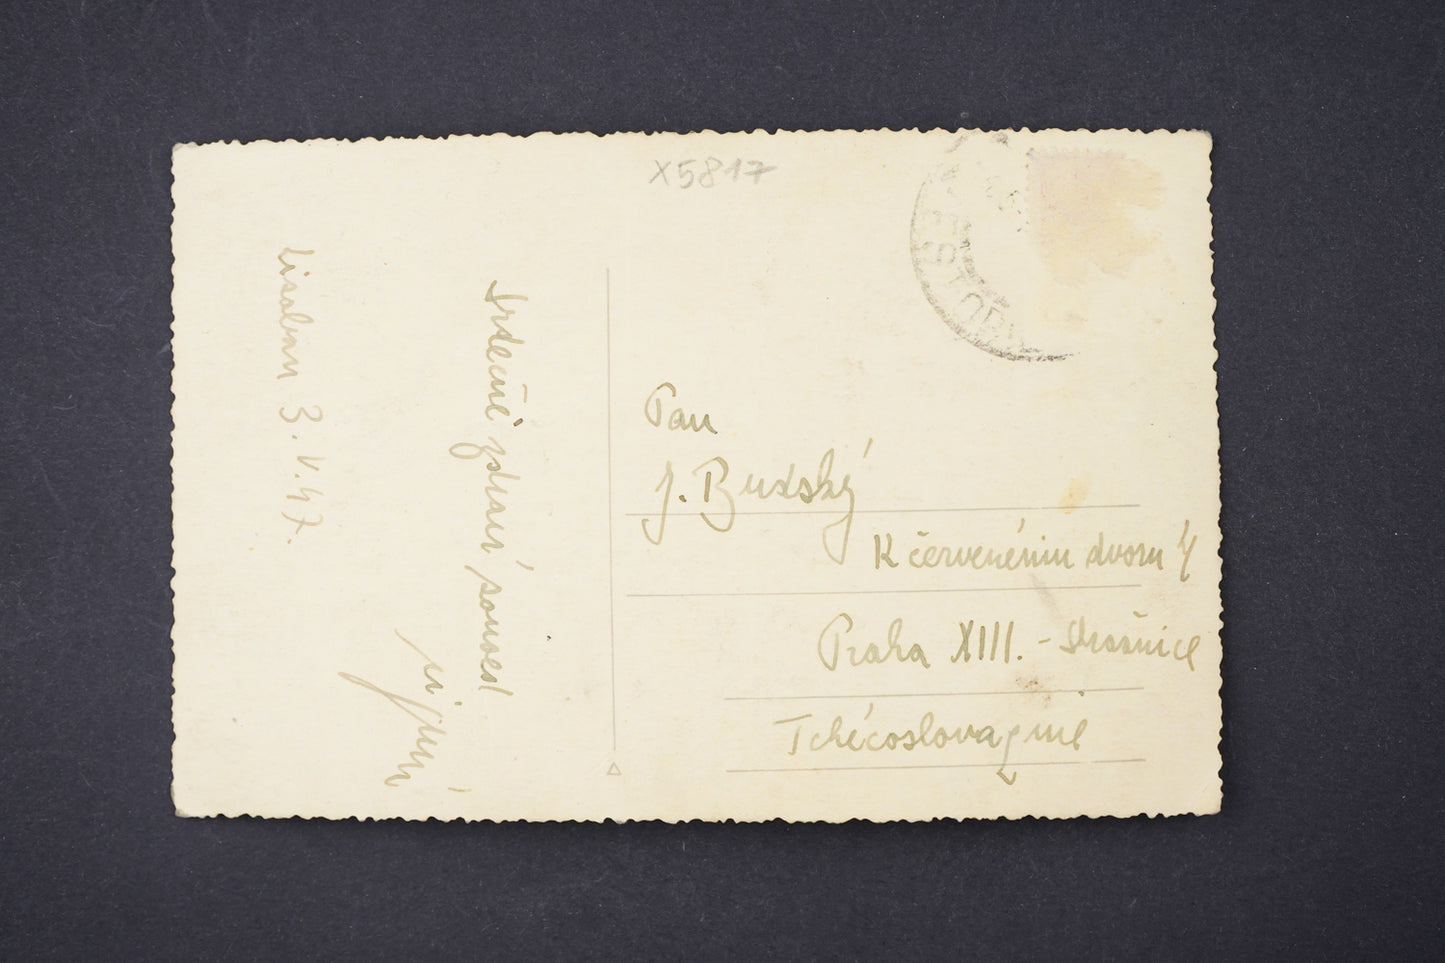 X5817
Lisabon 3.V.47.
Srdečné zdraví
Pan
J. Budský
K červenému dvoru 4
Praha XIII. - Strašnice
Tchécoslovaquie